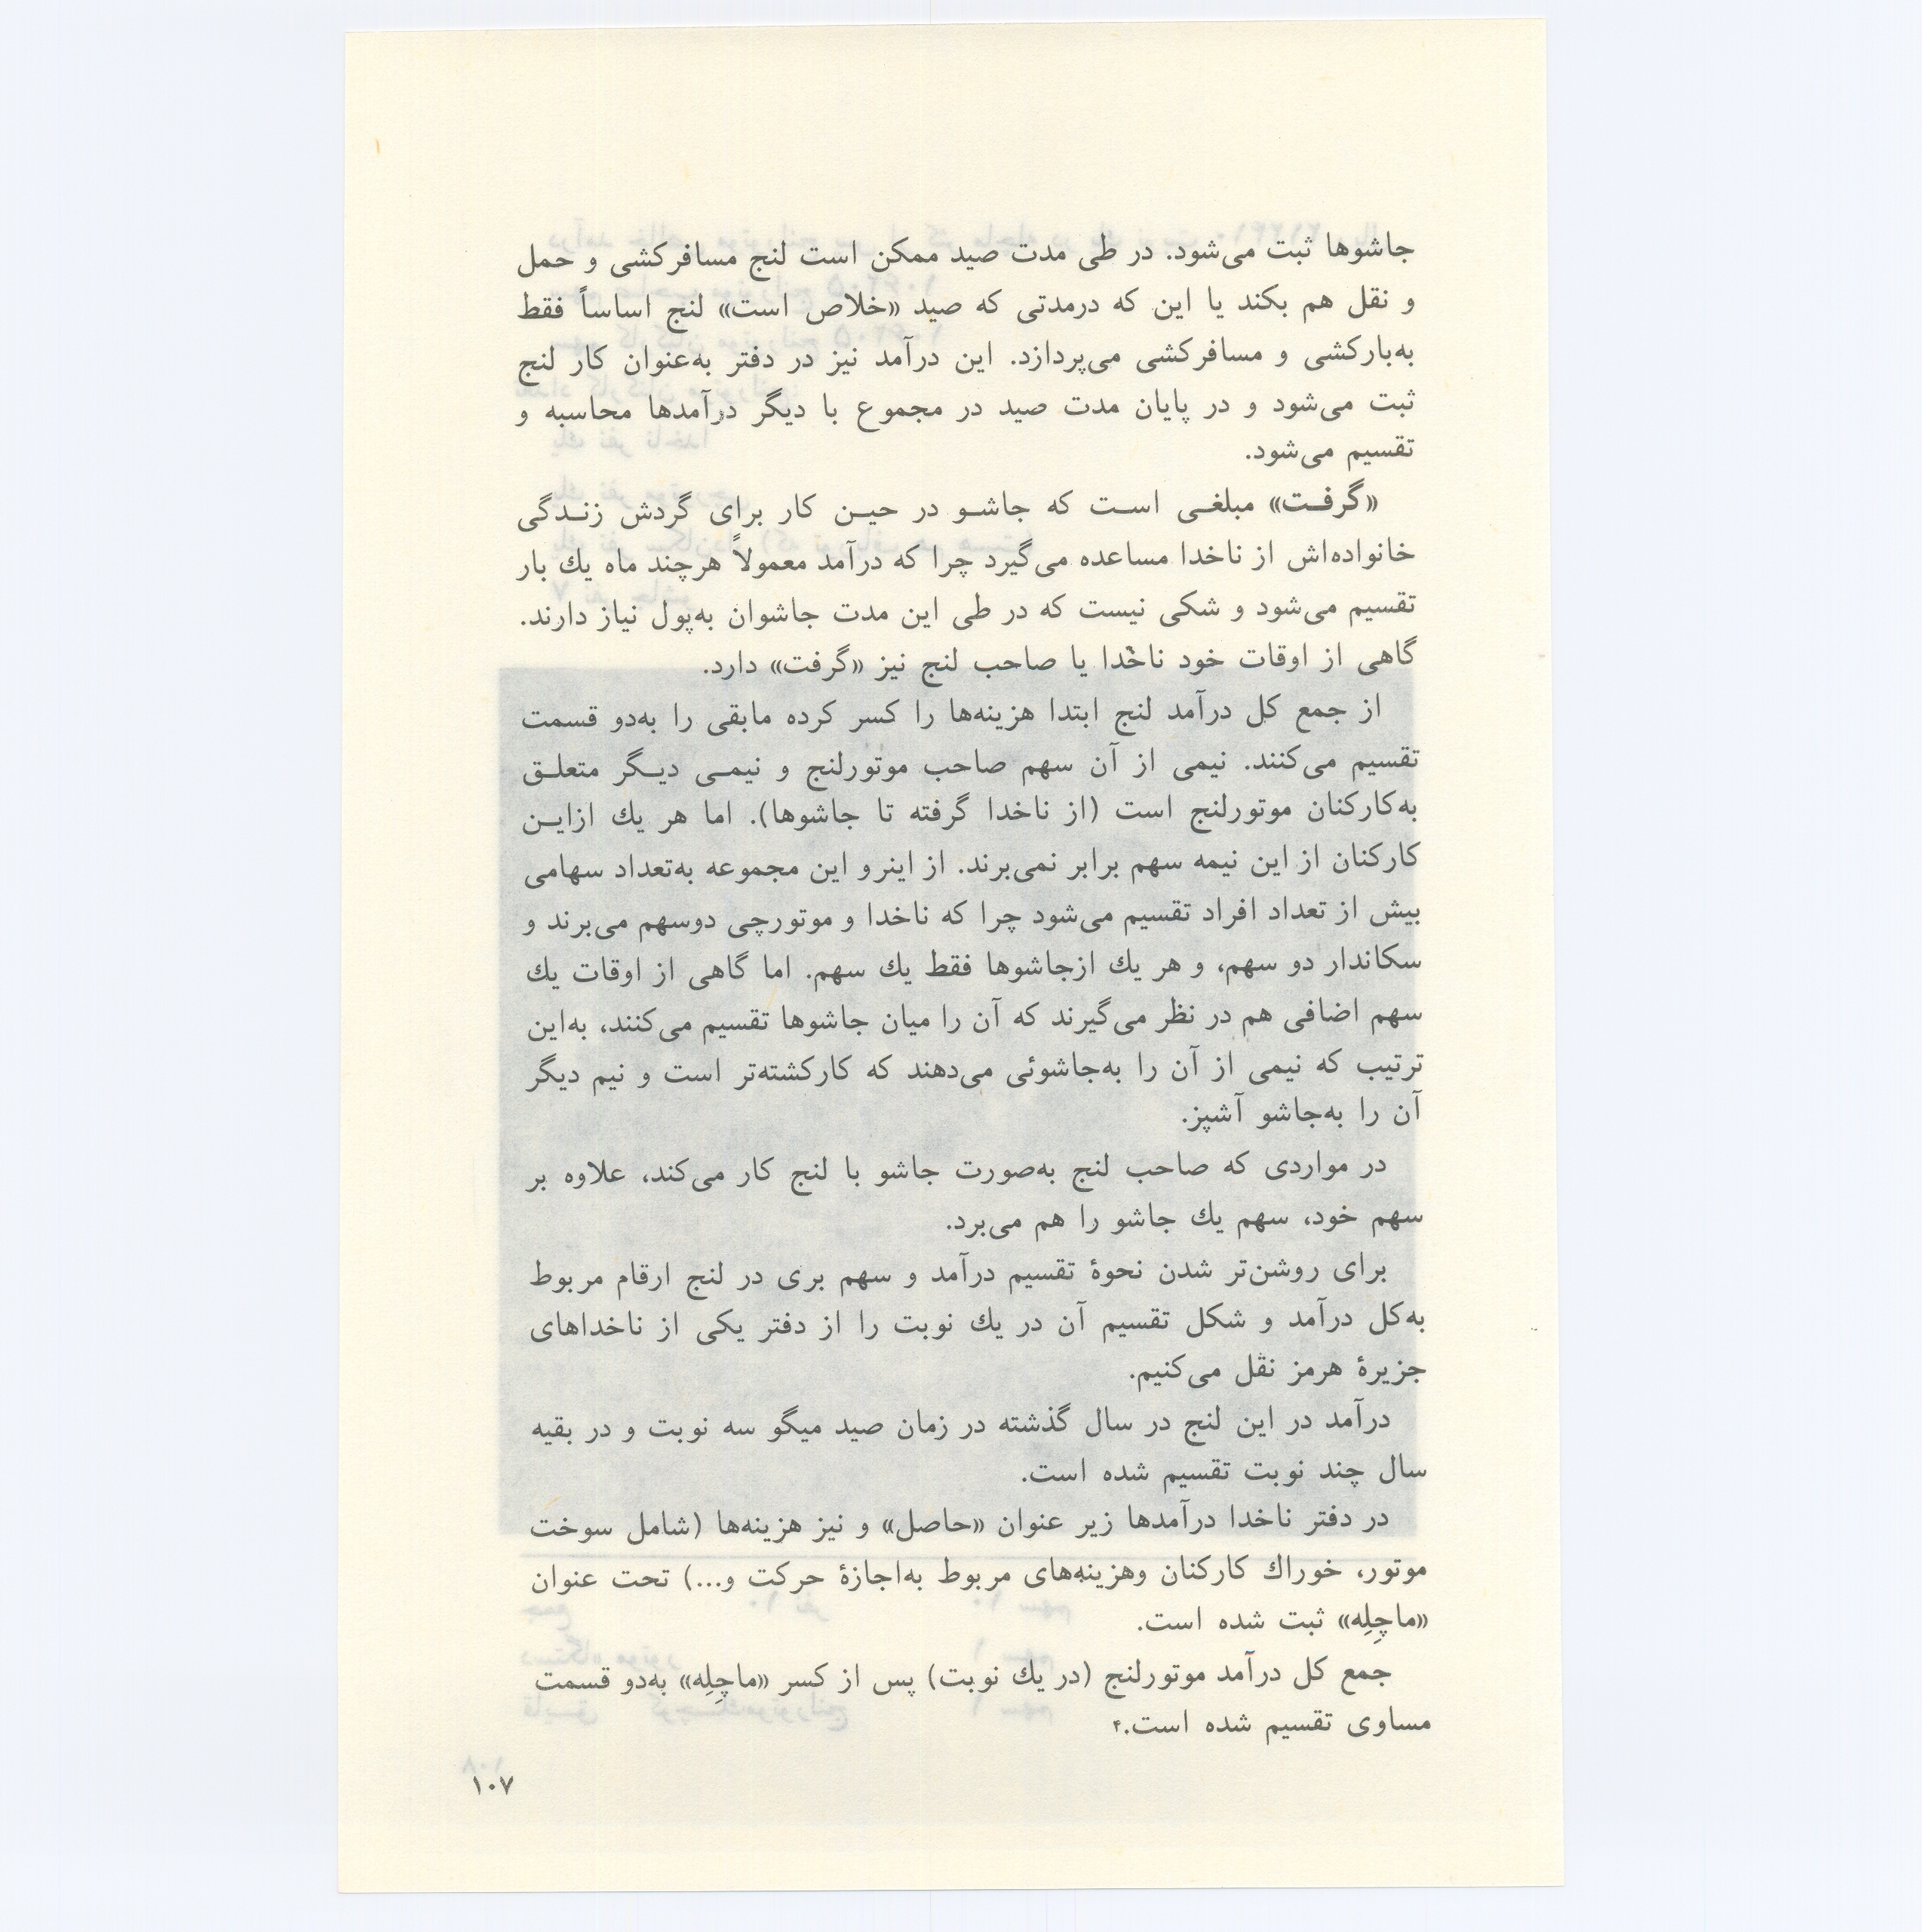 جاشوها ثبت می‌شود. در طی مدت صید ممکن است لنج مسافرکشی و حمل
و نقل هم بکند یا این که درمدتی که صید «خلاص است» لنج اساساً فقط
به‌بارکشی و مسافرکشی می‌پردازد. این درآمد نیز در دفتر به‌عنوان کار لنج
ثبت می‌شود و در پایان مدت صید در مجموع با دیگر درآمدها محاسبه و
تقسیم می‌شود.
«گرفـت» مبلغـی اسـت که جاشـو در حیـن کار برای گردش زنـدگی
خانواده‌اش از ناخدا مساعده می‌گیرد چرا که درآمد معمولاً هرچند ماه یك بار
تقسیم می‌شود و شکی نیست که در طی این مدت جاشوان به‌پول نیاز دارند.
گاهی از اوقات خود ناخُدا یا صاحب لنج نیز «گرفت» دارد.
از جمع کل درآمد لنج ابتدا هزینه‌ها را کسر کرده مابقی را به‌دو قسمت
تقسیم می‌کنند. نیمی از آن سهم صاحب موتورلنج و نیمـی دیـگر متعلـق
به‌کارکنان موتورلنج است (از ناخدا گرفته تا جاشوها). اما هر یك ازایـن
کارکنان از این نیمه سهم برابر نمی‌برند. از اینرو این مجموعه به‌تعداد سهامی
بیش از تعداد افراد تقسیم می‌شود چرا که ناخدا و موتورچی دوسهم می‌برند و
سکاندار دو سهم، و هر یك ازجاشوها فقط یك سهم. اما گاهی از اوقات یك
سهم اضافی هم در نظر می‌گیرند که آن را میان جاشوها تقسیم می‌کنند، به‌این
ترتیب که نیمی از آن را به‌جاشوئی می‌دهند که کارکشته‌تر است و نیم دیگر
آن را به‌جاشو آشپز.
در مواردی که صاحب لنج به‌صورت جاشو با لنج کار می‌کند، علاوه بر
سهم خود، سهم یك جاشو را هم می‌برد.
برای روشن‌تر شدن نحوهٔ تقسیم درآمد و سهم بری در لنج ارقام مربوط
به‌کل درآمد و شکل تقسیم آن در یك نوبت را از دفتر یکی از ناخداهای
جزیرهٔ هرمز نقل می‌کنیم.
درآمد در این لنج در سال گذشته در زمان صید میگو سه نوبت و در بقیه
سال چند نوبت تقسیم شده است.
در دفتر ناخدا درآمدها زیر عنوان «حاصل» و نیز هزینه‌ها (شامل سوخت
موتور، خوراك کارکنان وهزینه‌های مربوط به‌اجازهٔ حرکت و...) تحت عنوان
«ماچِلِه» ثبت شده است.
جمع کل درآمد موتورلنج (در یك نوبت) پس از کسر «ماچِلِه» به‌دو قسمت
مساوی تقسیم شده است.۴
۱۰۷